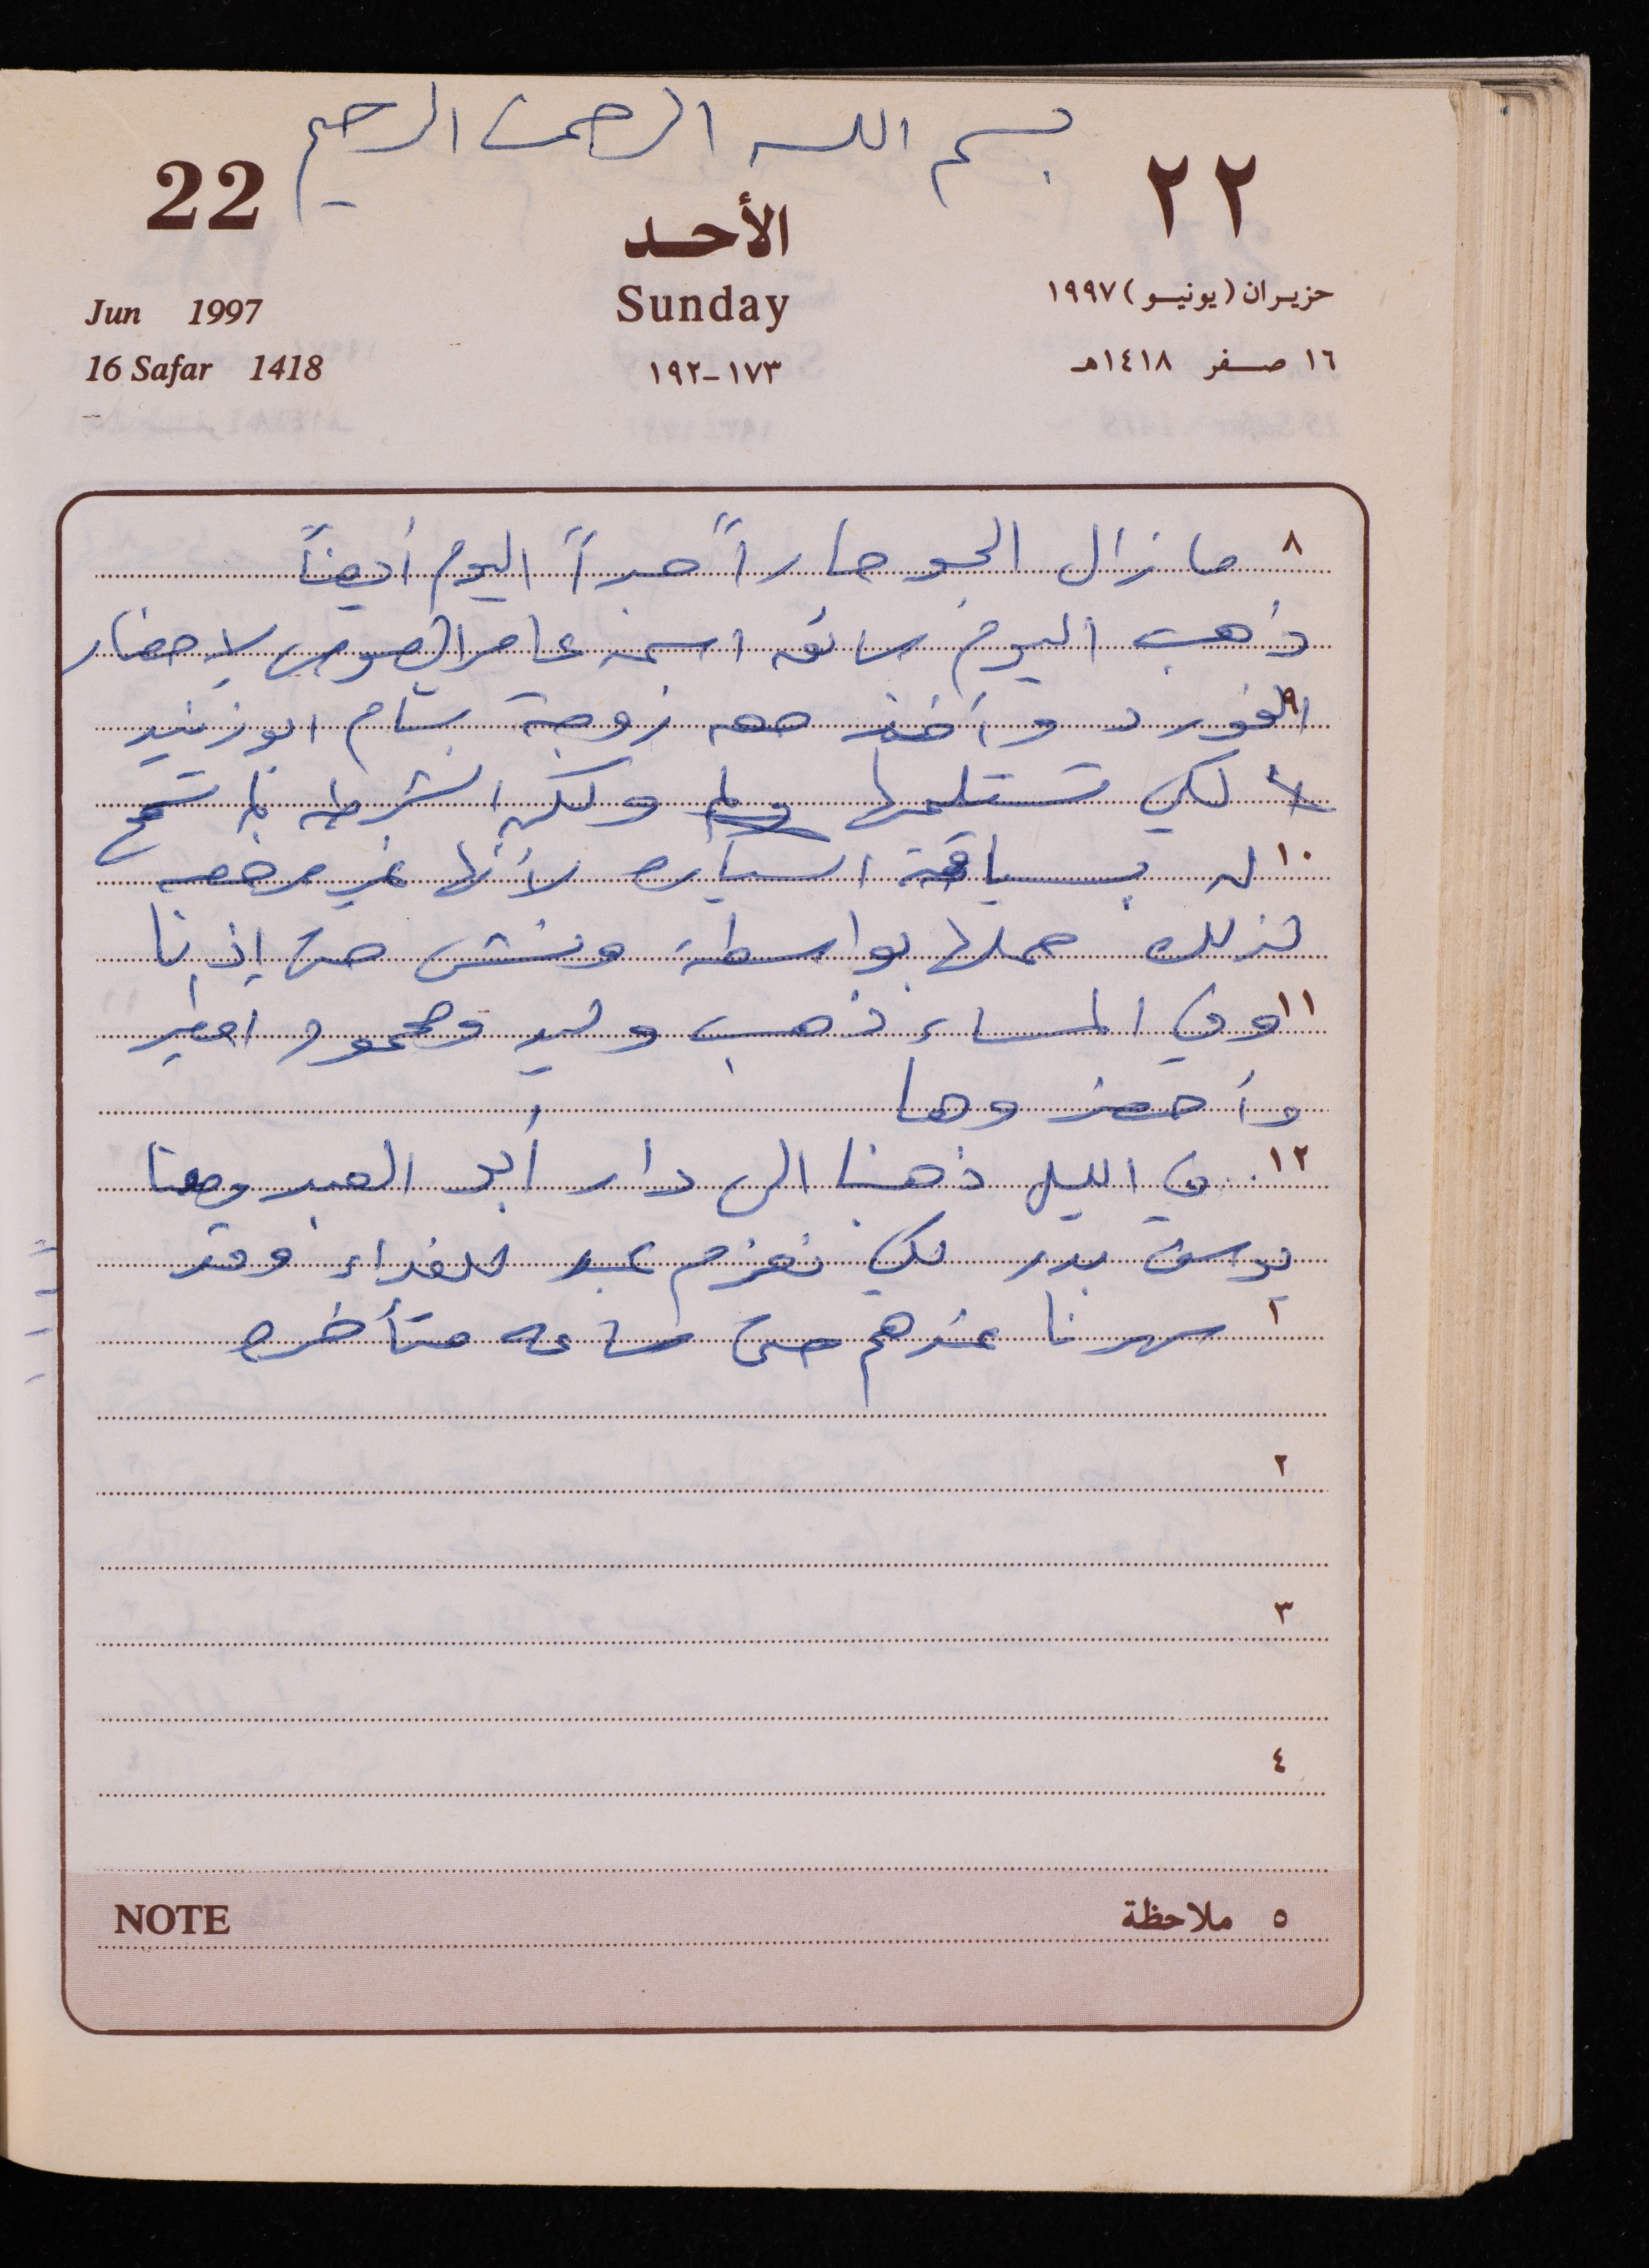 بسم الله الرحمن الرحيم
22
٢٢
الأحد
Sunday
١٧٣-١٩٢
Jun 1997
16 Safar 1418
حزيران (يونيو) ١٩٩٧
١٦ صفر ١٤١٨هـ
٨ ما زال الجو حاراً جداً اليوم أيضاً
ذهب اليوم سائق اسمه عامر الصوص لإحضار
٩ الفورد وأخذ معه زوجة بسام ابو زنيد
لكي تستلمها ولكن الشرطه لم تسمح
١٠ له بسياقة السياره لأنها غير مرخصه
لذلك حملها بواسطة ونش من إذنا
١١ وفي المساء ذهب وليد ومحمود اطير
وأحضروها
١٢ في الليل ذهبنا الى دار أبو العبد ومعنا
يوسف بدر لكي نعزم عبد للغداء وقد
١ سهرنا عندهم حتى ساعه متأخره
٢
٣
٤
NOTE
٥ ملاحظة